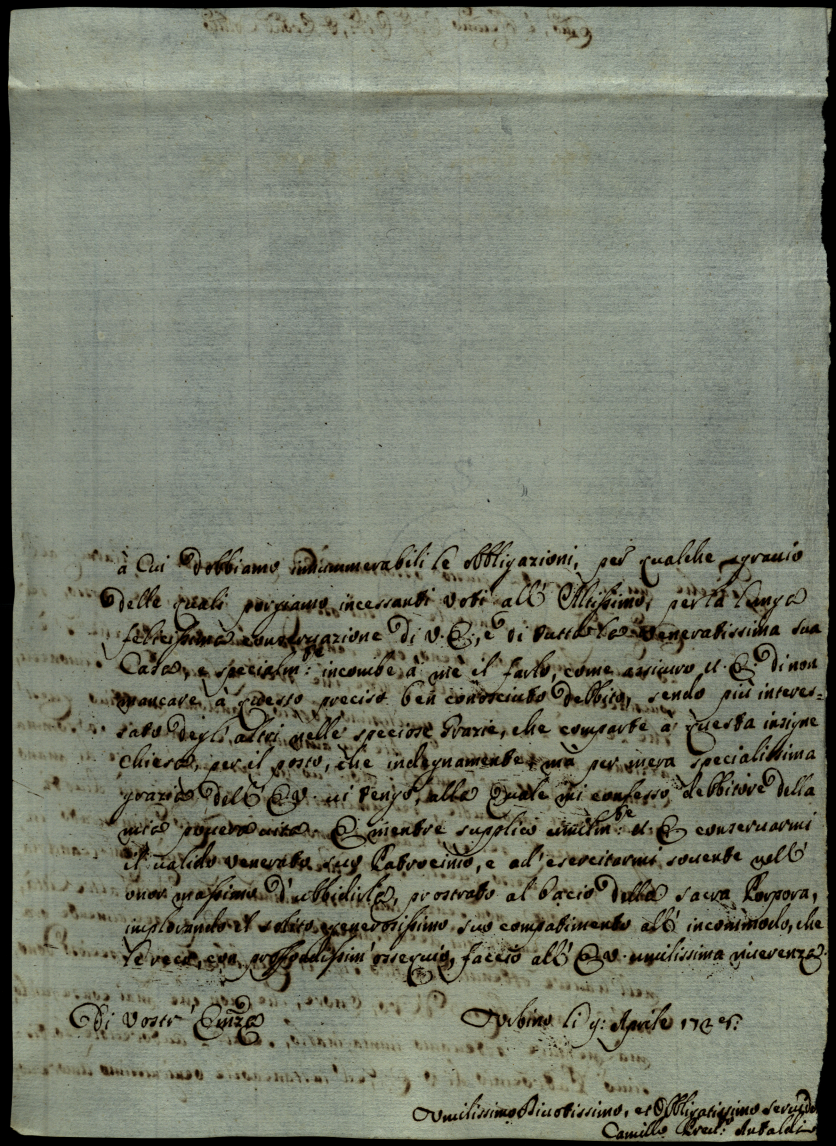 à Cui dobbiamo innumerabili le obbligazioni, per qualche agravio
delle quali porgiamo incessanti voti all' Altissimo, per la lunga
felicissima conservazione di V. E., e di tutta la veneratissima sua
Casa, e specialm:te incombe à me il farlo, come assicuro V. E. di non
mancare à questo preciso ben conosciuto debbito, sendo più interes=
sato degli altri nelle speciose Grazie, che comparte à questa insigne
Chiesa, per il posto, che indegnamente, mà per mera specialissima
grazia dell' E. V. vi tengo, alla quale mi confesso debbitore della
mia povera vita. E mentre supplico umilm:te V. E. conservarmi
il valido venerato suo Patrocinio, e ad' esercitarmi sovente nell'
onor massimo d'ubbidirla, prostrato al bacio della sacra Porpora,
implorando il solito generosissimo suo compatimento all' incommodo, che
le reco, con profondissim' ossequio, faccio all' E. V. umilissima riverenza.
Di Vostr' Emza
Urbino li Aprile
Umilissimo Divotissimo, et Obbligatissimo Servid
Camillo Antaldi